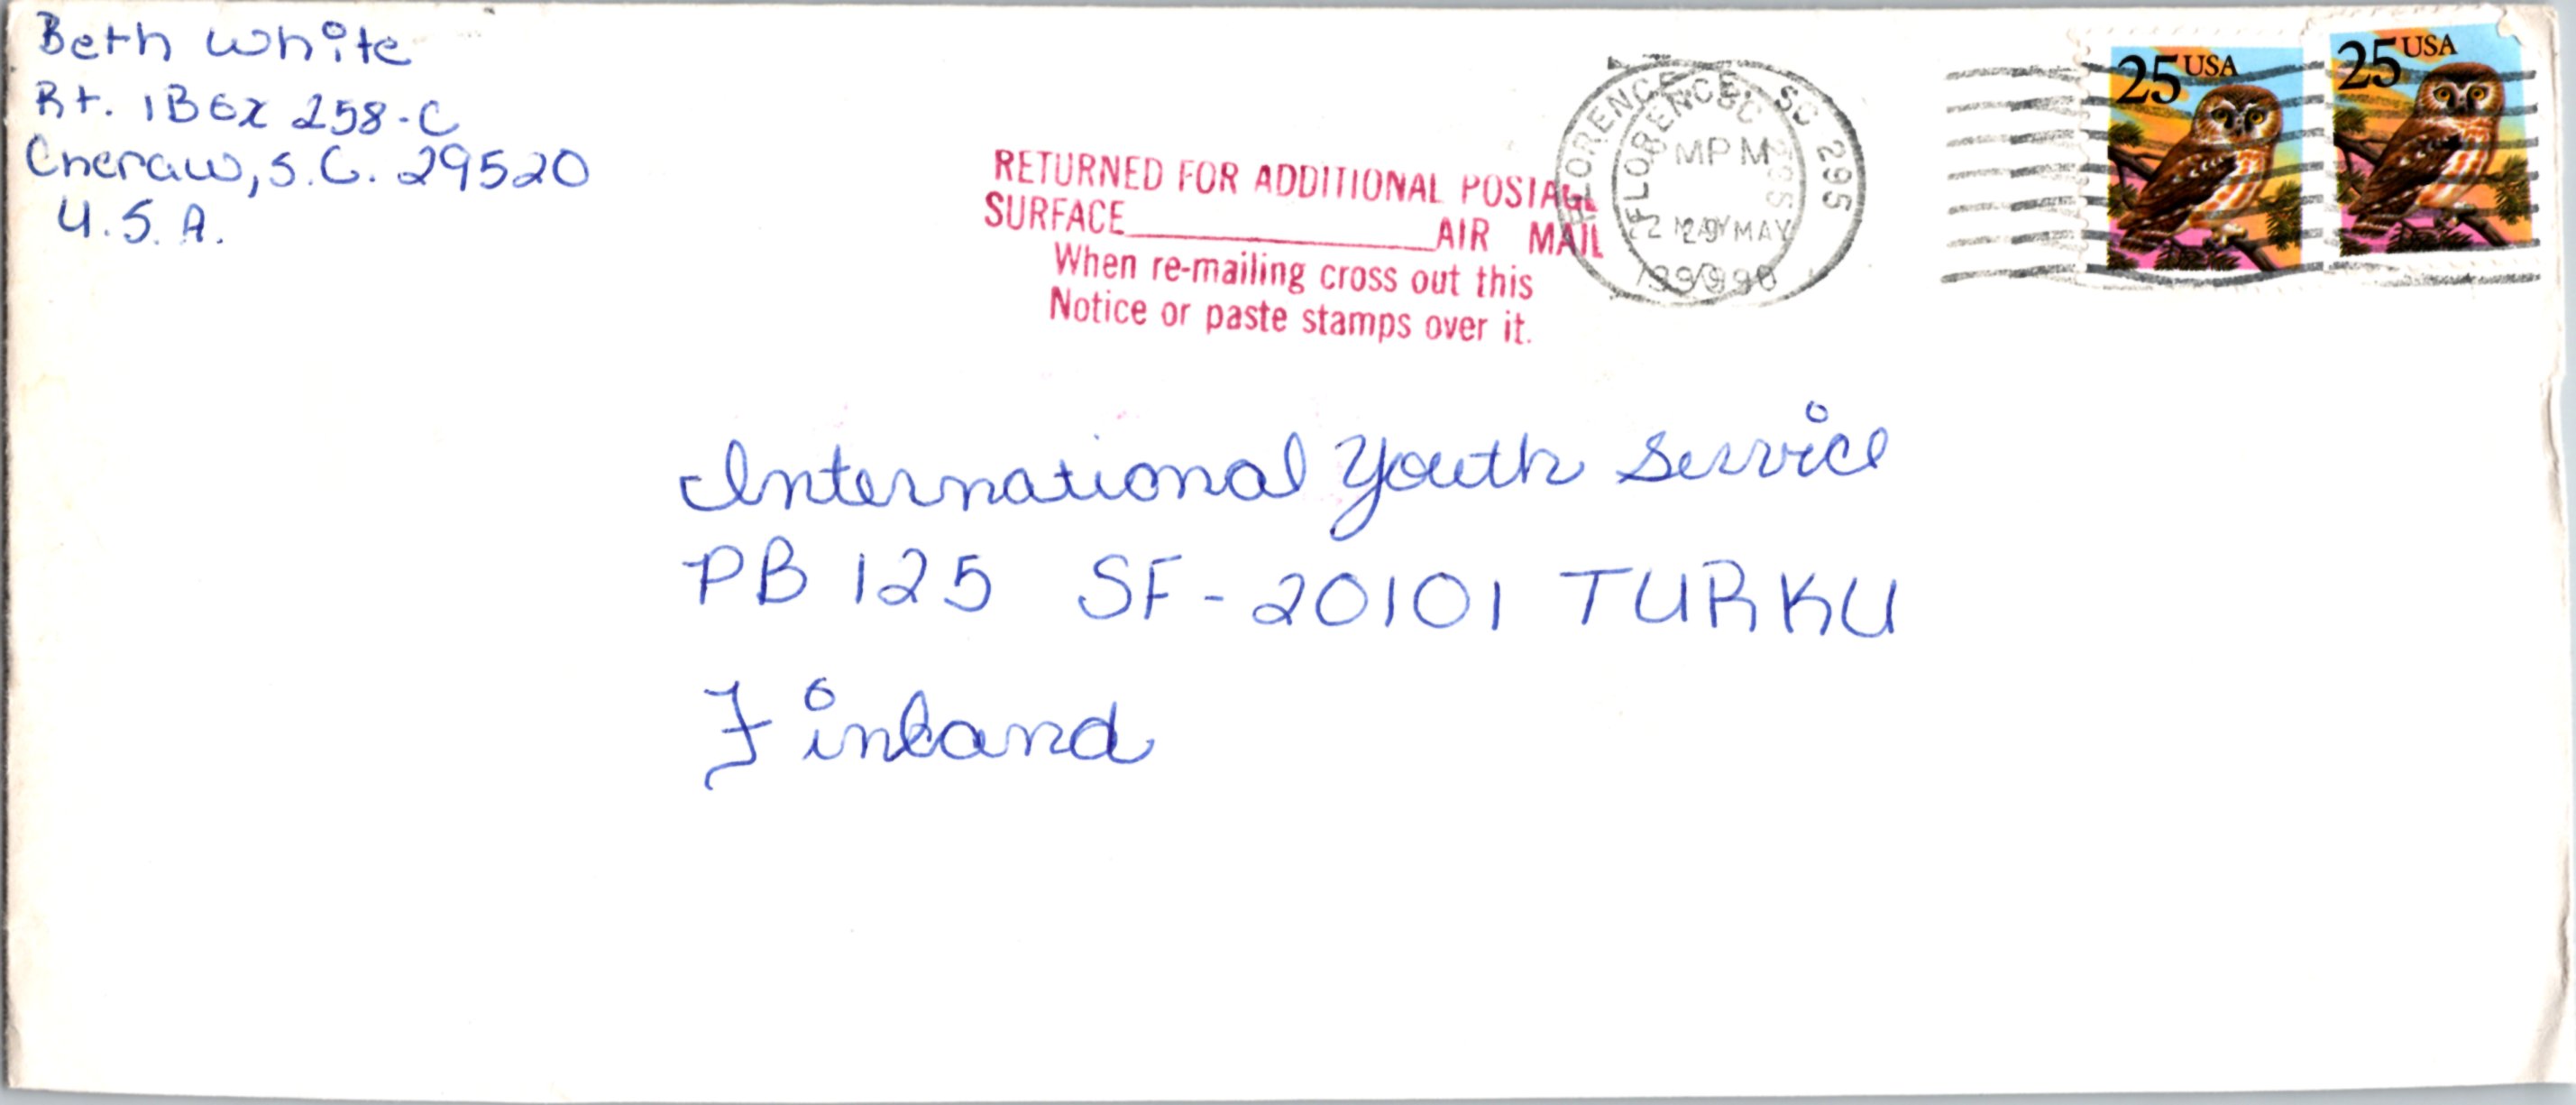 Beth White
Rt. 1 Box 258-C
Cheraw, S.C. 29520
U.S.A.
RETURNED FOR ADDITIONAL POSTAGE
SURFACE____________AIR MAIL
When re-mailing cross out this
Notice or paste stamps over it.
FLORENCE, SC 295
FLORENCE, SC 295
PM
MAY
1990
25 USA
25 USA
International Youth Service
PB 125 SF-20101 TURKU
Finland